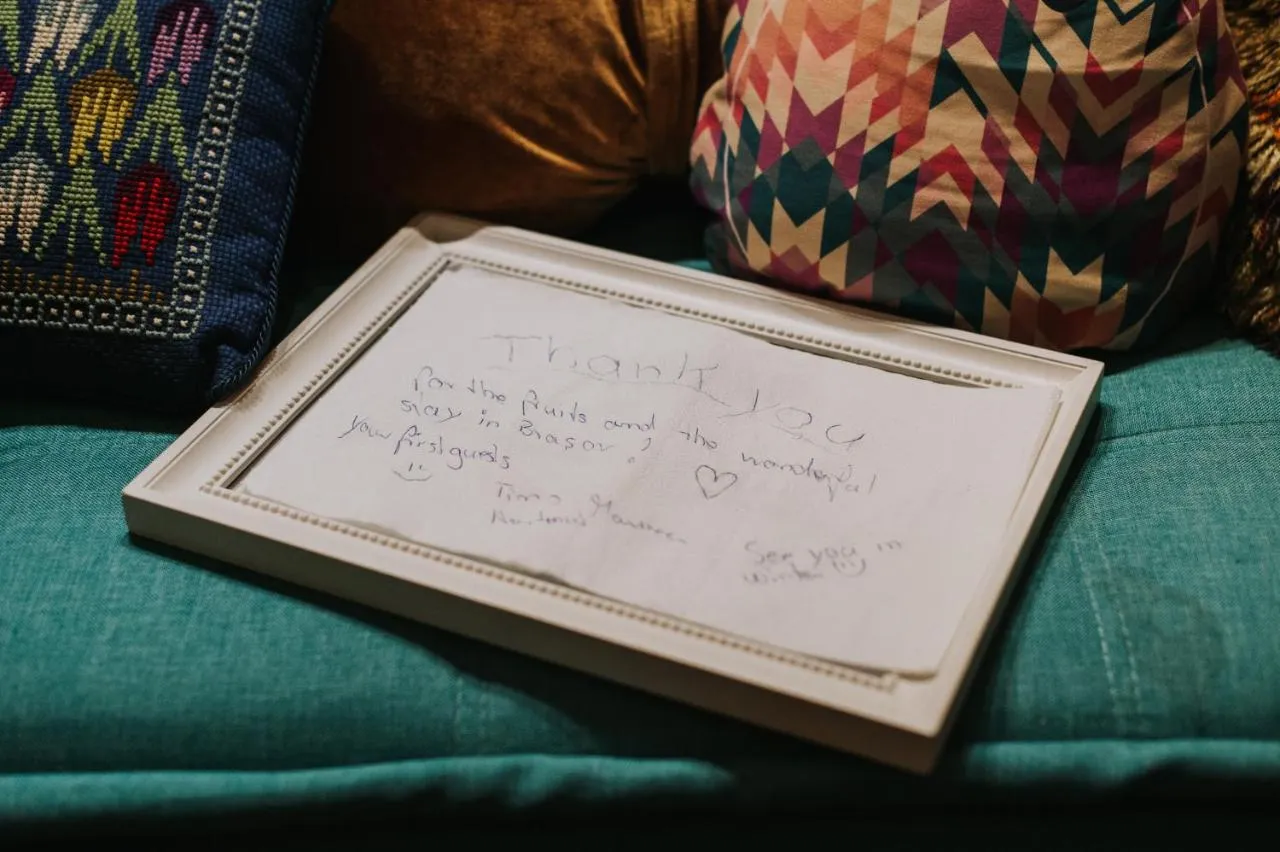 Thank you
for the fruits and the wonderful
stay in Brasov!
your first guests
See you in
Winter